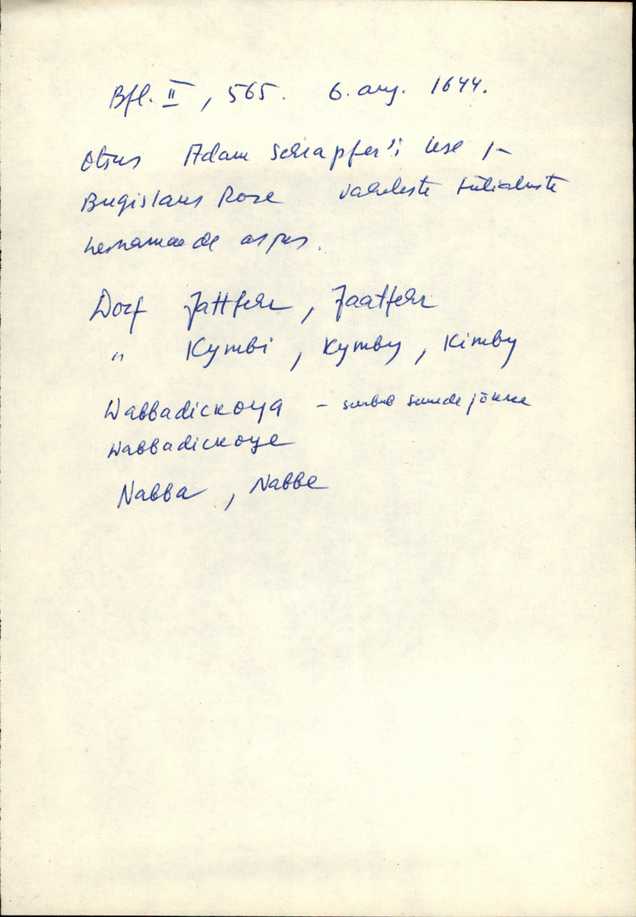 Bfl. II, 565. 6. aug. 1644.
Otsus Adam Schrapfer'i lese ja
Bugislaus Rose vaheliste tüliabiste
heinamaade asjus.
Dorf Jattfer, Jaatfer
" Kymbi, Kymby, Kimby
Wabbadickoya – suubub suurde jõkke
Wabbadickoye
Nabba, Nabbe